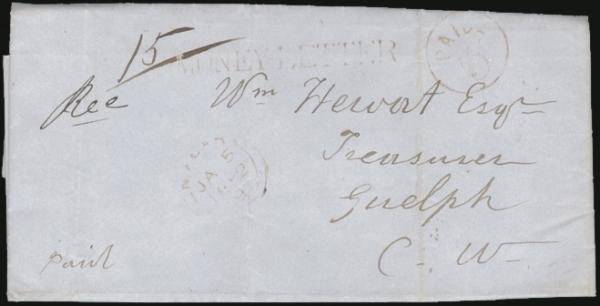 15
MONEY-LETTER
PAID
Rec
Wm Hewort Esqr
Treasurer
Guelph
C. W
JA 5
paid